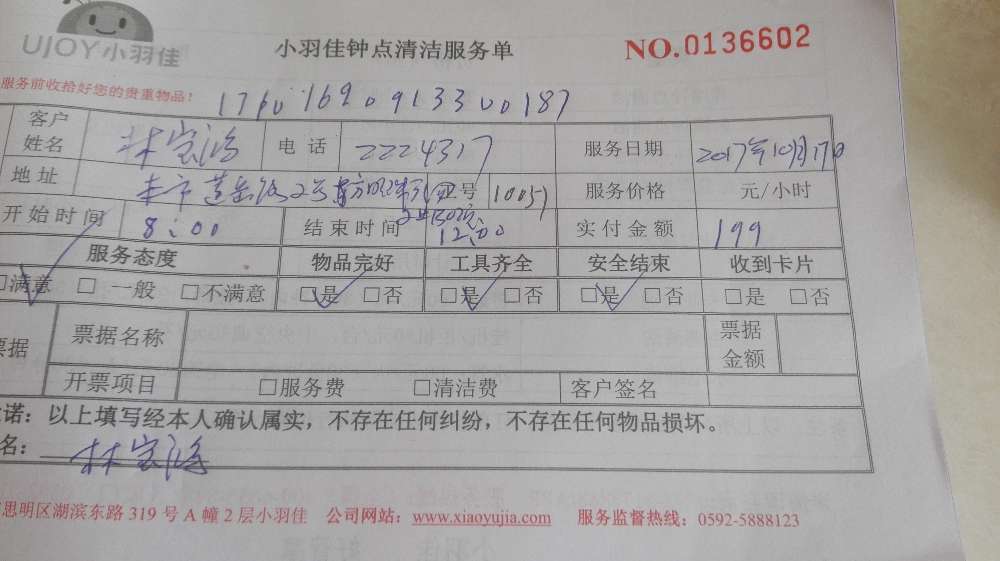 UJOY小羽佳
小羽佳钟点清洁服务单
NO.0136602
服务前收拾好您的贵重物品!
客户姓名 林宏鸿 电话 2224317 服务日期 2017年10月17日
地址 2号 号 1005 服务价格 元/小时
开始时间 8:00 结束时间 12:00 实付金额 199
服务态度 物品完好 工具齐全 安全结束 收到卡片
□满意 □一般 □不满意 □是 □否 □是 □否 □是 □否 □是 □否
票据 票据名称 票据金额
开票项目 □服务费 □清洁费 客户签名
诺:以上填写经本人确认属实,不存在任何纠纷,不存在任何物品损坏。
名:林宏鸿
思明区湖滨东路 319 号 A 幢 2 层小羽佳 公司网站:www.xiaoyujia.com 服务监督热线:0592-5888123